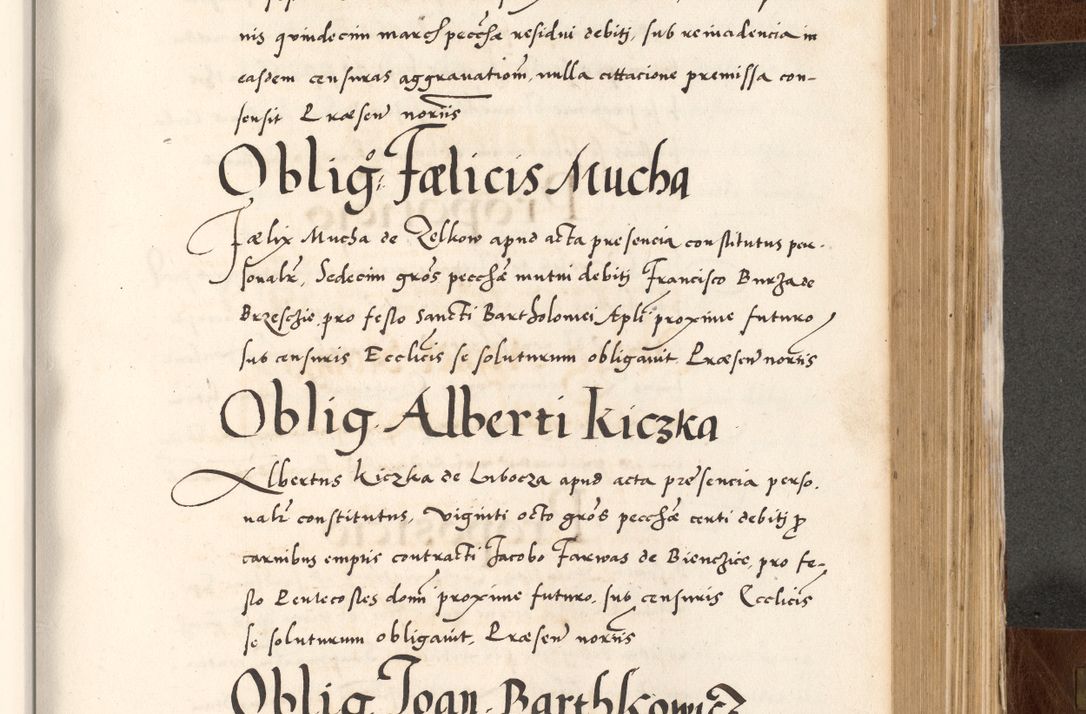 nis quindecim march pecch̃æ residui debitj, sub reincidencia in
easdem censuras aggravation̄, nulla cittacione premissa con-
sensit Præsen̄ nor̄iis
Obligᵒ: Fælicis Mucha
Fælix Mucha de Zelkow apud acta presencia constitutus per-
sonalr̄, Sedecim gros̄ pecch̃æ mutui debitj Francisco Burza de
Brzeschie pro festo Sancti Bartholomei Apli proxime futuro
sub censuris Ecclicis se soluturum obligauit. Præsen̄ noriis
Oblig. Alberti Kiczka
Albertus Kiczka de Lubocza apud acta presencia perso.
nalr̄ constitutus, viginti octo gros̄ pecch̃æ certi debitj ꝓ
carnibus emptis contracti Jacobo Farwas de Bienczice, pro fe-
sto Pentecostes domī proxime futuro, sub censuris Ecclicis
se soluturum obligauit, Præsen̄ noriis
Oblig. Joan. Barthkowicz